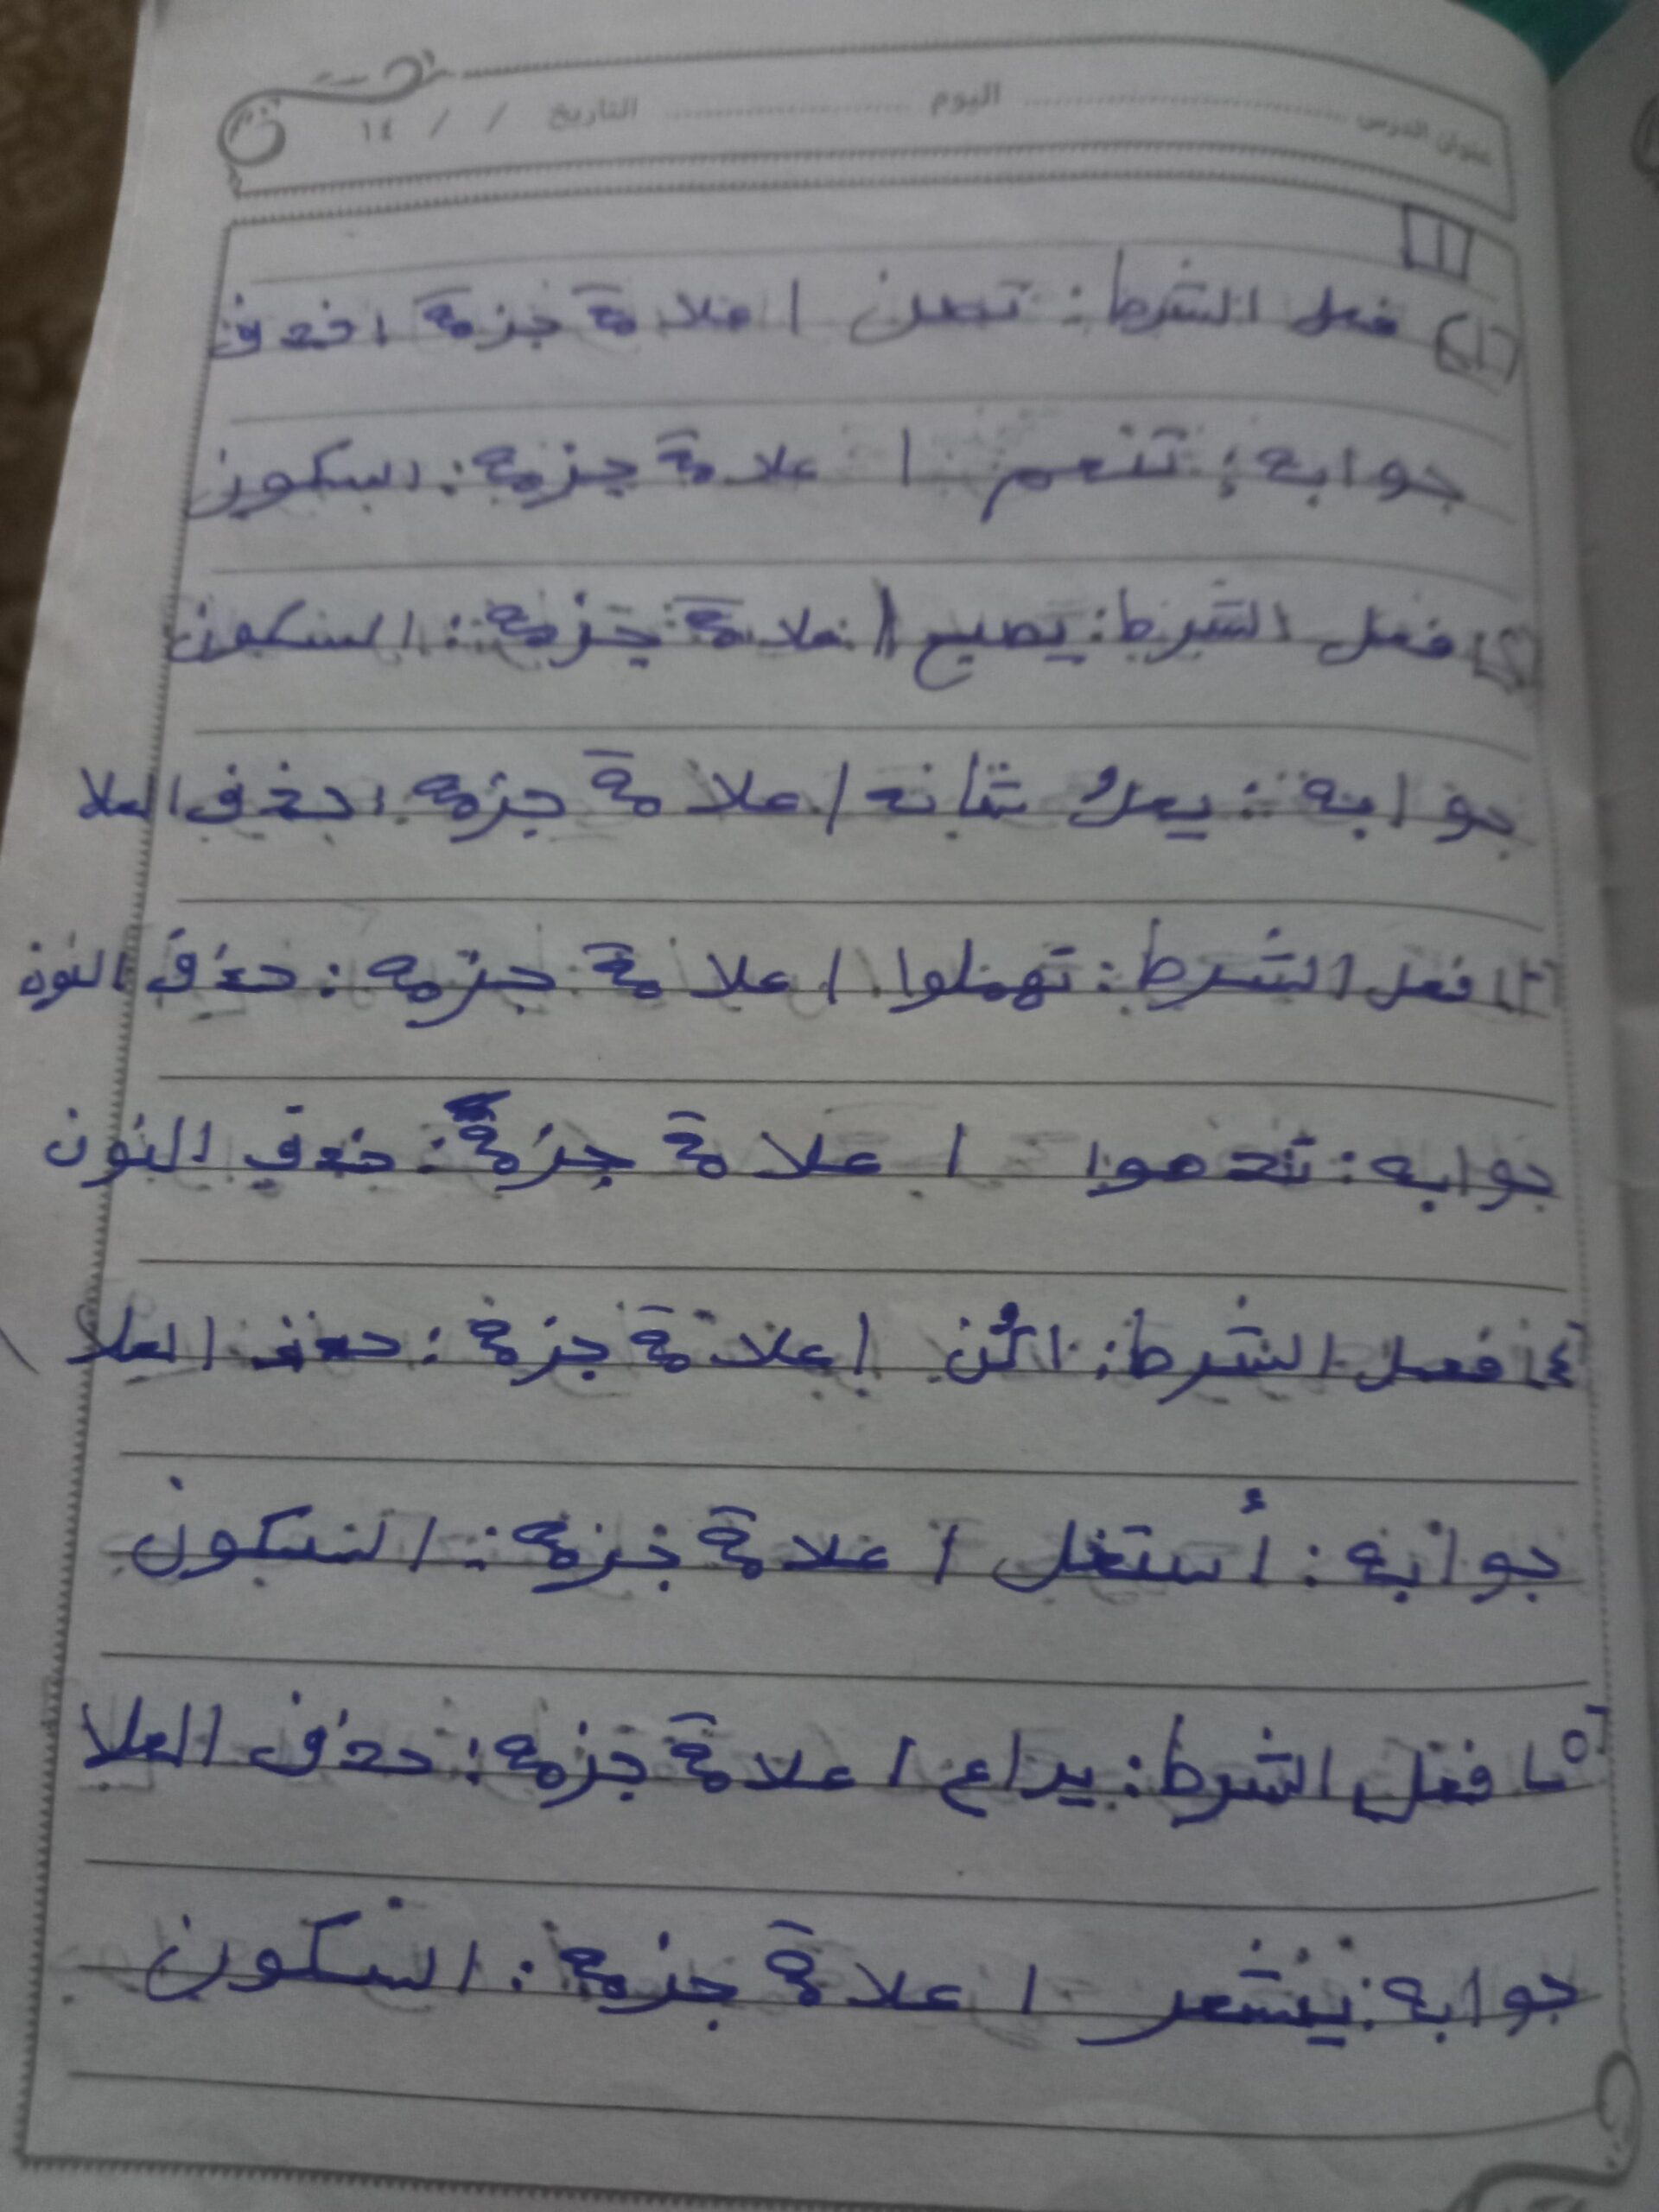 عنوان الدرس اليوم التاريخ / / ١٤
١
١) فعل الشرط: تصن / علامة جزمة احذف
جوابه: تنعم / علامة جزمه: السكون
٢) فعل الشرط: يصبح / علامة جزمه: السكون
جوابه: يعل شأنه / علامة جزمه احذف العلا
٣) فعل الشرط: تهملوا / علامة جزمه: حذف النون
جوابه: تندموا / علامة جزمة: حذف النون
٤) فعل الشرط: / علامة جزمة: حذف العلا
جوابه: أستغل / علامة جزمة: السكون
٥) فعل الشرط: يراع / علامة جزمه: حذف العلا
جوابه: ينشعر / علامة جزمه: السكون